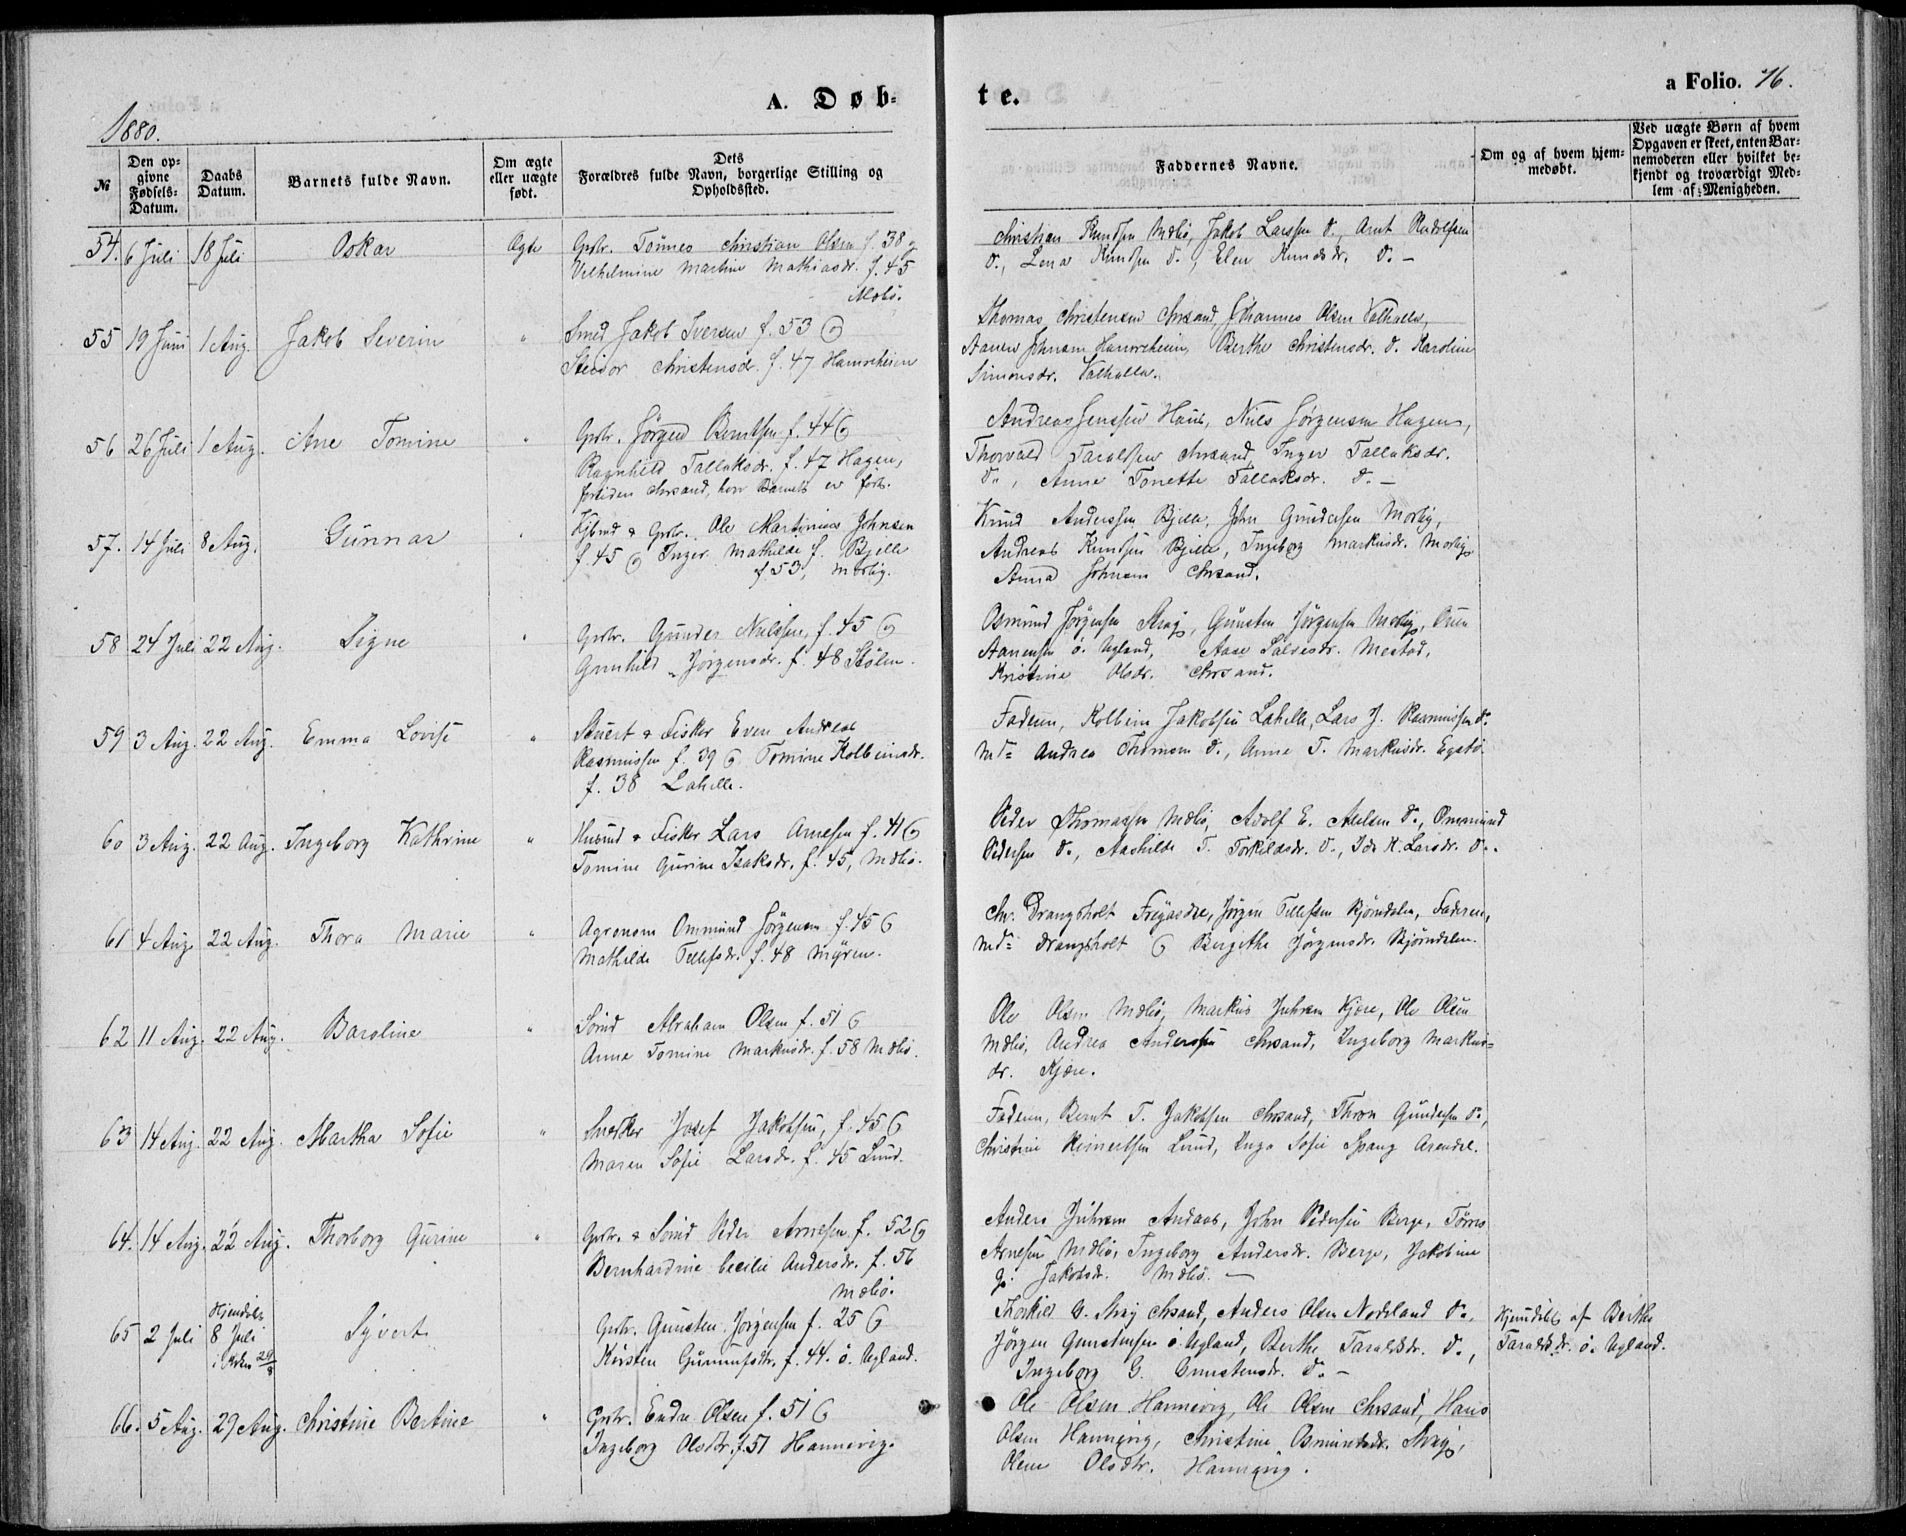 A. Døb-
te.
a Folio. 16.
1880.
№
Den op-
givne
Fødsels-
Datum.
Daabs
Datum.
Barnets fulde Navn.
Om ægte
eller uægte
født.
Dets
Forældres fulde Navn, borgerlige Stilling og
Opholdssted.
Faddernes Navne.
Om og af hvem hjem-
medøbt.
Ved uægte Børn af hvem
Opgaven er skeet, enten Bar-
nemoderen eller hvilket be-
kjendt og troværdigt Med-
lem af Menigheden.
54. 6 Juli 18 Juli Oskar Ægte Grbr. Tönnes Christian Olsen f. 38 &
Vilhelmine Martine Mathiasdr. f. 45
Mebø.
Christian Knudsen Mebø, Jakob Larssen do., Arnt Rudolfsen
do., Lena Knudsen do., Elen Knudsdr. do. –
55 19 Juni 1 Aug. Jakob Severin " Smed Jakob Iversen f. 53 &
Steidor Christensdr. f. 47 Hamreheien
Thomas Christensen Chrsand, Johannes Olsen Valhalla,
Aanen Johnsen Hamreheien, Berthe Christensdr. do. Karoline
Simonsdr. Valhalla.
56 26 Juli 1 Aug. Ane Tomine " Grbr. Jörgen Berntsen f. 44 &
Ragnhild Tallaksdr. f. 47 Hagen,
fortiden Chrsand, hvor Barnet er født.
Andreas Jenssen Haus, Niels Jörgensen Hagen,
Thorvald Taralsen Chrsand, Inger Tallaksdr.
do., Anne Tonette Tallaksdr. do. –
57. 14 Juli 8 Aug. Gunnar " & Grbr. Ole Martinius Johnsen
f. 45 & Inger Mathilde f. Bjelle
f 53, Mosbÿ.
Knud Anderssen Bjelle, John Gundersen Mosbÿ,
Andreas Knudsen Bjelle, Ingeborg Markusdr. Mosbÿ
Anna Johnsen Chrsand.
58 24 Juli 22 Aug. Signe " Grbr. Gunder Nielssen f. 45 &
Gunhild Jörgensdr. f. 48 Stølen.
Osmund Jörgensen Straÿ, Gunsten Jörgensen Mosbÿ,
Aanensen ö. Ugland, Aase Salvesdr. Mestad,
Kristine Olsdr. Chrsand.
59 3 Aug. 22 Aug. Emma Lovise " Stuert & Fisker Even Andreas
Rasmussen f. 39 & Tomine Kolbeinsdr.
f. 38 Lahelle.
Faderen, Kolbein Jakobsen Lahelle, Lars J. Rasmussen do.
Md= Andrea Thomsen do., Anne T. Markusdr. Egstö.
60 3 Aug. 22 Aug. Ingeborg Kathrine " Husmd & Fisker Lars Arnesen f. 41 &
Tomine Gurine Isaksdr. f. 45, Mebø.
Peder Thomassen Mebø, Adolf E. Atelsen do., Ommund
Pedersen do., Aashilde T. Torkildsdr. do., Ida K. Larsdr. do.
61 4 Aug 22 Aug. Thora Marie " Agronom Ommund Jörgensen f. 45 &
Mathilde Tellefsdr. f. 48 Mÿren.
Chr. Drangsholt Frÿasdal, Jörgen Tellefsen Bjørndalen, Faderen,
Md= Drangsholt & Bergithe Jörgensdr. Bjørndalen.
62 11 Aug. 22 Aug. Baroline " Sømd Abraham Olsen f. 51 &
Anne Tomine Markusdr. f. 58 Mebø.
Ole Olsen Mebø, Markus Juhrsen Kjære, Ole Olsen
Mebø, Andrea Anderssen Chrsand, Ingeborg Markus=
dr. Kjære.
63 14 Aug. 22 Aug. Martha Sofie " Snekker Josef Jakobsen, f. 45 &
Maren Sofie Larsdr. f. 45 Lund.
Faderen, Bernt T. Jakobsen Chrsand, Thron Gundersen do.,
Christine Reinertsen Lund, Inga Sofie Spang Arendal.
64. 14 Aug. 22 Aug. Thorborg Gurine " Grbr. & Sømd Peder Arnesen f. 52 &
Bernhardine Cecilie Andersdr. f. 56
Mebø.
Anders Juhrsen Andaas, John Pedersen Berge, Tørres
Arnesen Mebø, Ingeborg Andersdr. Berge, Jakobine
G. Jakobsdr. Mebø. –
65 2 Juli Hjemdøbt
8 Juli
i Kirken 29/8 Sÿvert Grbr. Gunsten Jörgensen f. 25 &
Kirsten Gunnufsdtr. f. 44. ö. Ugland.
Thorkild G. Straÿ Chrsand, Anders Olsen Nodeland do.,
Jörgen Gunstensen ö. Ugland, Berthe Taraldsdr. do.,
Ingeborg G. Gunstensdr. do. –
Hjemdøbt af Berthe
Taraldsdr. ö. Ugland.
66. 5 Aug. 29 Aug. Christine Bertine " Grbr. Endre Olsen f. 51 &
Ingeborg Olsdtr. f. 51 Hannevig.
Ole Olsen Hannevig, Ole Olsen Chrsand, Hans
Olsen Hannevig, Christine Osmundsdr. Straÿ,
Olene Olsdtr. Hannevig.